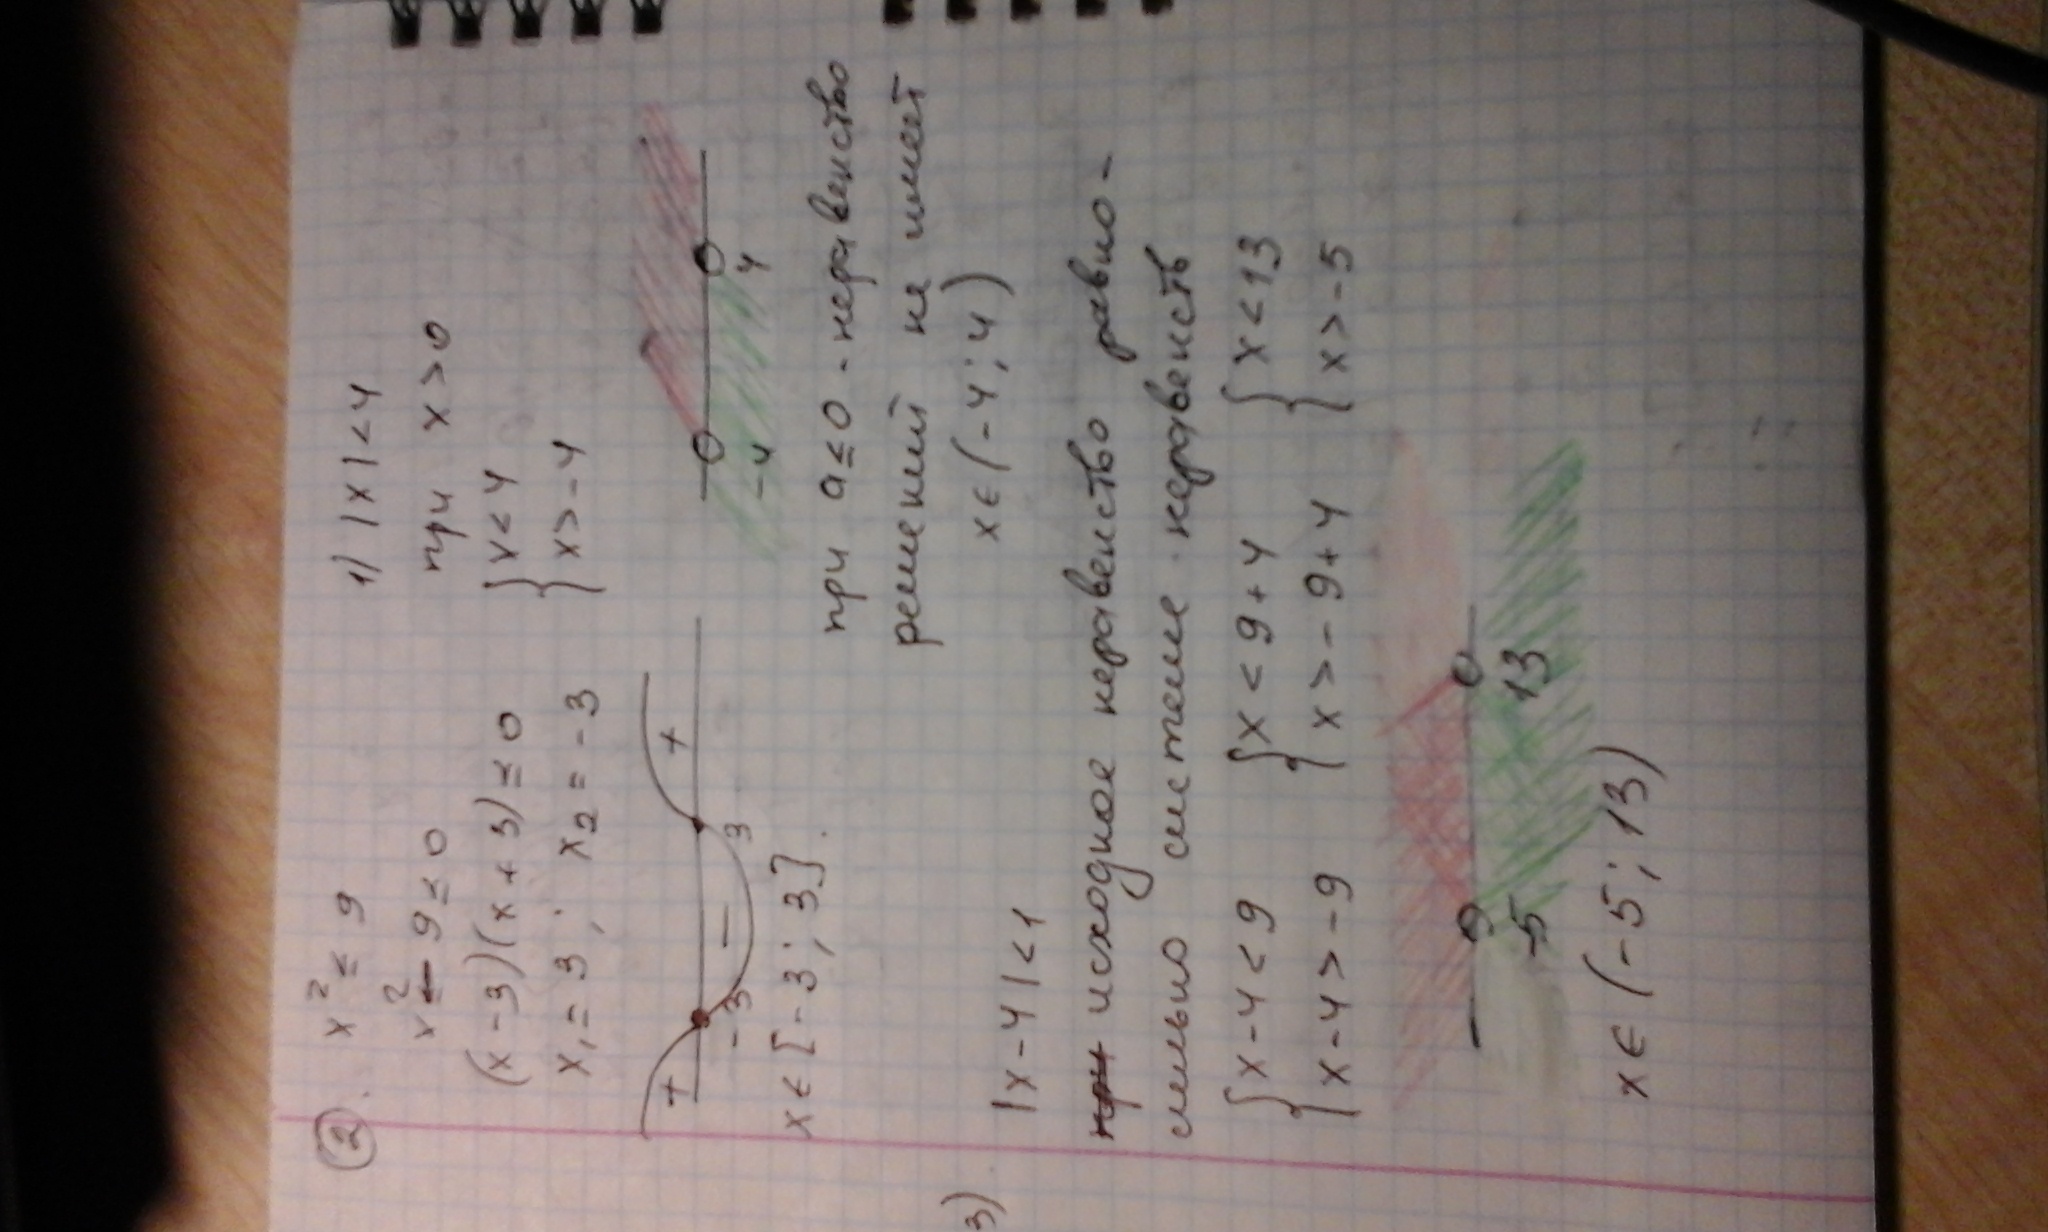 ② .
x² ≤ 9
x² - 9 ≤ 0
(x - 3)(x + 3) ≤ 0
x₁ = 3 ; x₂ = -3
+ - +
-3 3
x ∈ [-3; 3].
1) |x| < 4
при x > 0
{ x < 4
{ x > -4
-4 4
при a ≤ 0 - неравенство
решений не имеет
x ∈ (-4; 4)
3) |x - 4| < 1
исходное неравенство равно-
сильно системе неравенств
{ x - 4 < 9 { x < 9 + 4 { x < 13
{ x - 4 > -9 { x > -9 + 4 { x > -5
-5 13
x ∈ (-5; 13)